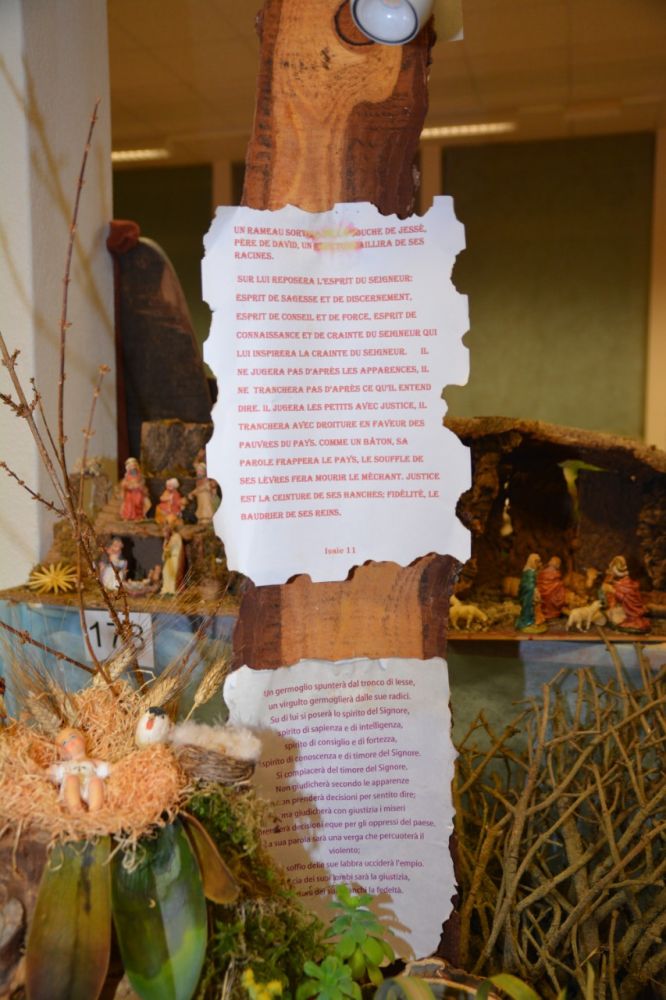 UN RAMEAU SORT OUCHE DE JESSÉ,
PÈRE DE DAVID, UN AILLIRA DE SES
RACINES.
SUR LUI REPOSERA L'ESPRIT DU SEIGNEUR:
ESPRIT DE SAGESSE ET DE DISCERNEMENT,
ESPRIT DE CONSEIL ET DE FORCE, ESPRIT DE
CONNAISSANCE ET DE CRAINTE DU SEIGNEUR QUI
LUI INSPIRERA LA CRAINTE DU SEIGNEUR. IL
NE JUGERA PAS D'APRÈS LES APPARENCES, IL
NE TRANCHERA PAS D'APRÈS CE QU'IL ENTEND
DIRE. IL JUGERA LES PETITS AVEC JUSTICE, IL
TRANCHERA AVEC DROITURE EN FAVEUR DES
PAUVRES DU PAYS. COMME UN BÂTON, SA
PAROLE FRAPPERA LE PAYS, LE SOUFFLE DE
SES LÈVRES FERA MOURIR LE MÉCHANT. JUSTICE
EST LA CEINTURE DE SES HANCHES; FIDÉLITÉ, LE
BAUDRIER DE SES REINS.
Isaie 11
173
Un germoglio spunterà dal tronco di Iesse,
un virgulto germoglierà dalle sue radici.
Su di lui si poserà lo spirito del Signore,
spirito di sapienza e di intelligenza,
spirito di consiglio e di fortezza,
spirito di conoscenza e di timore del Signore.
Si compiacerà del timore del Signore,
Non giudicherà secondo le apparenze
non prenderà decisioni per sentito dire;
ma giudicherà con giustizia i miseri
prenderà decisioni eque per gli oppressi del paese.
La sua parola sarà una verga che percuoterà il
violento;
soffio delle sue labbra ucciderà l'empio.
cia dei suoi lombi sarà la giustizia,
dei suoi fianchi la fedeltà.